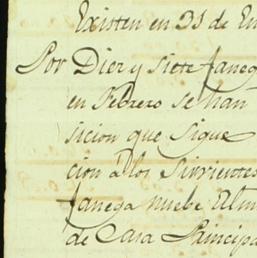 Existen en 31 de En
Por Diez y siete faneg
en Febrero se han
sicion que sigue
cion à los sirvientes
fanega nuebe Alm
de Casa Principa